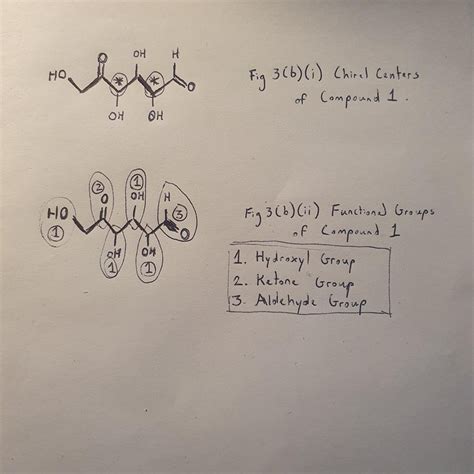 O
OH
H
HO
*
*
O
OH
OH
Fig 3(b)(i) Chiral Centers
of Compound 1.
2
1
O
OH
H
3
HO
O
1
OH
OH
1
1
Fig 3(b)(ii) Functional Groups
of Compound 1
1. Hydroxyl Group
2. Ketone Group
3. Aldehyde Group